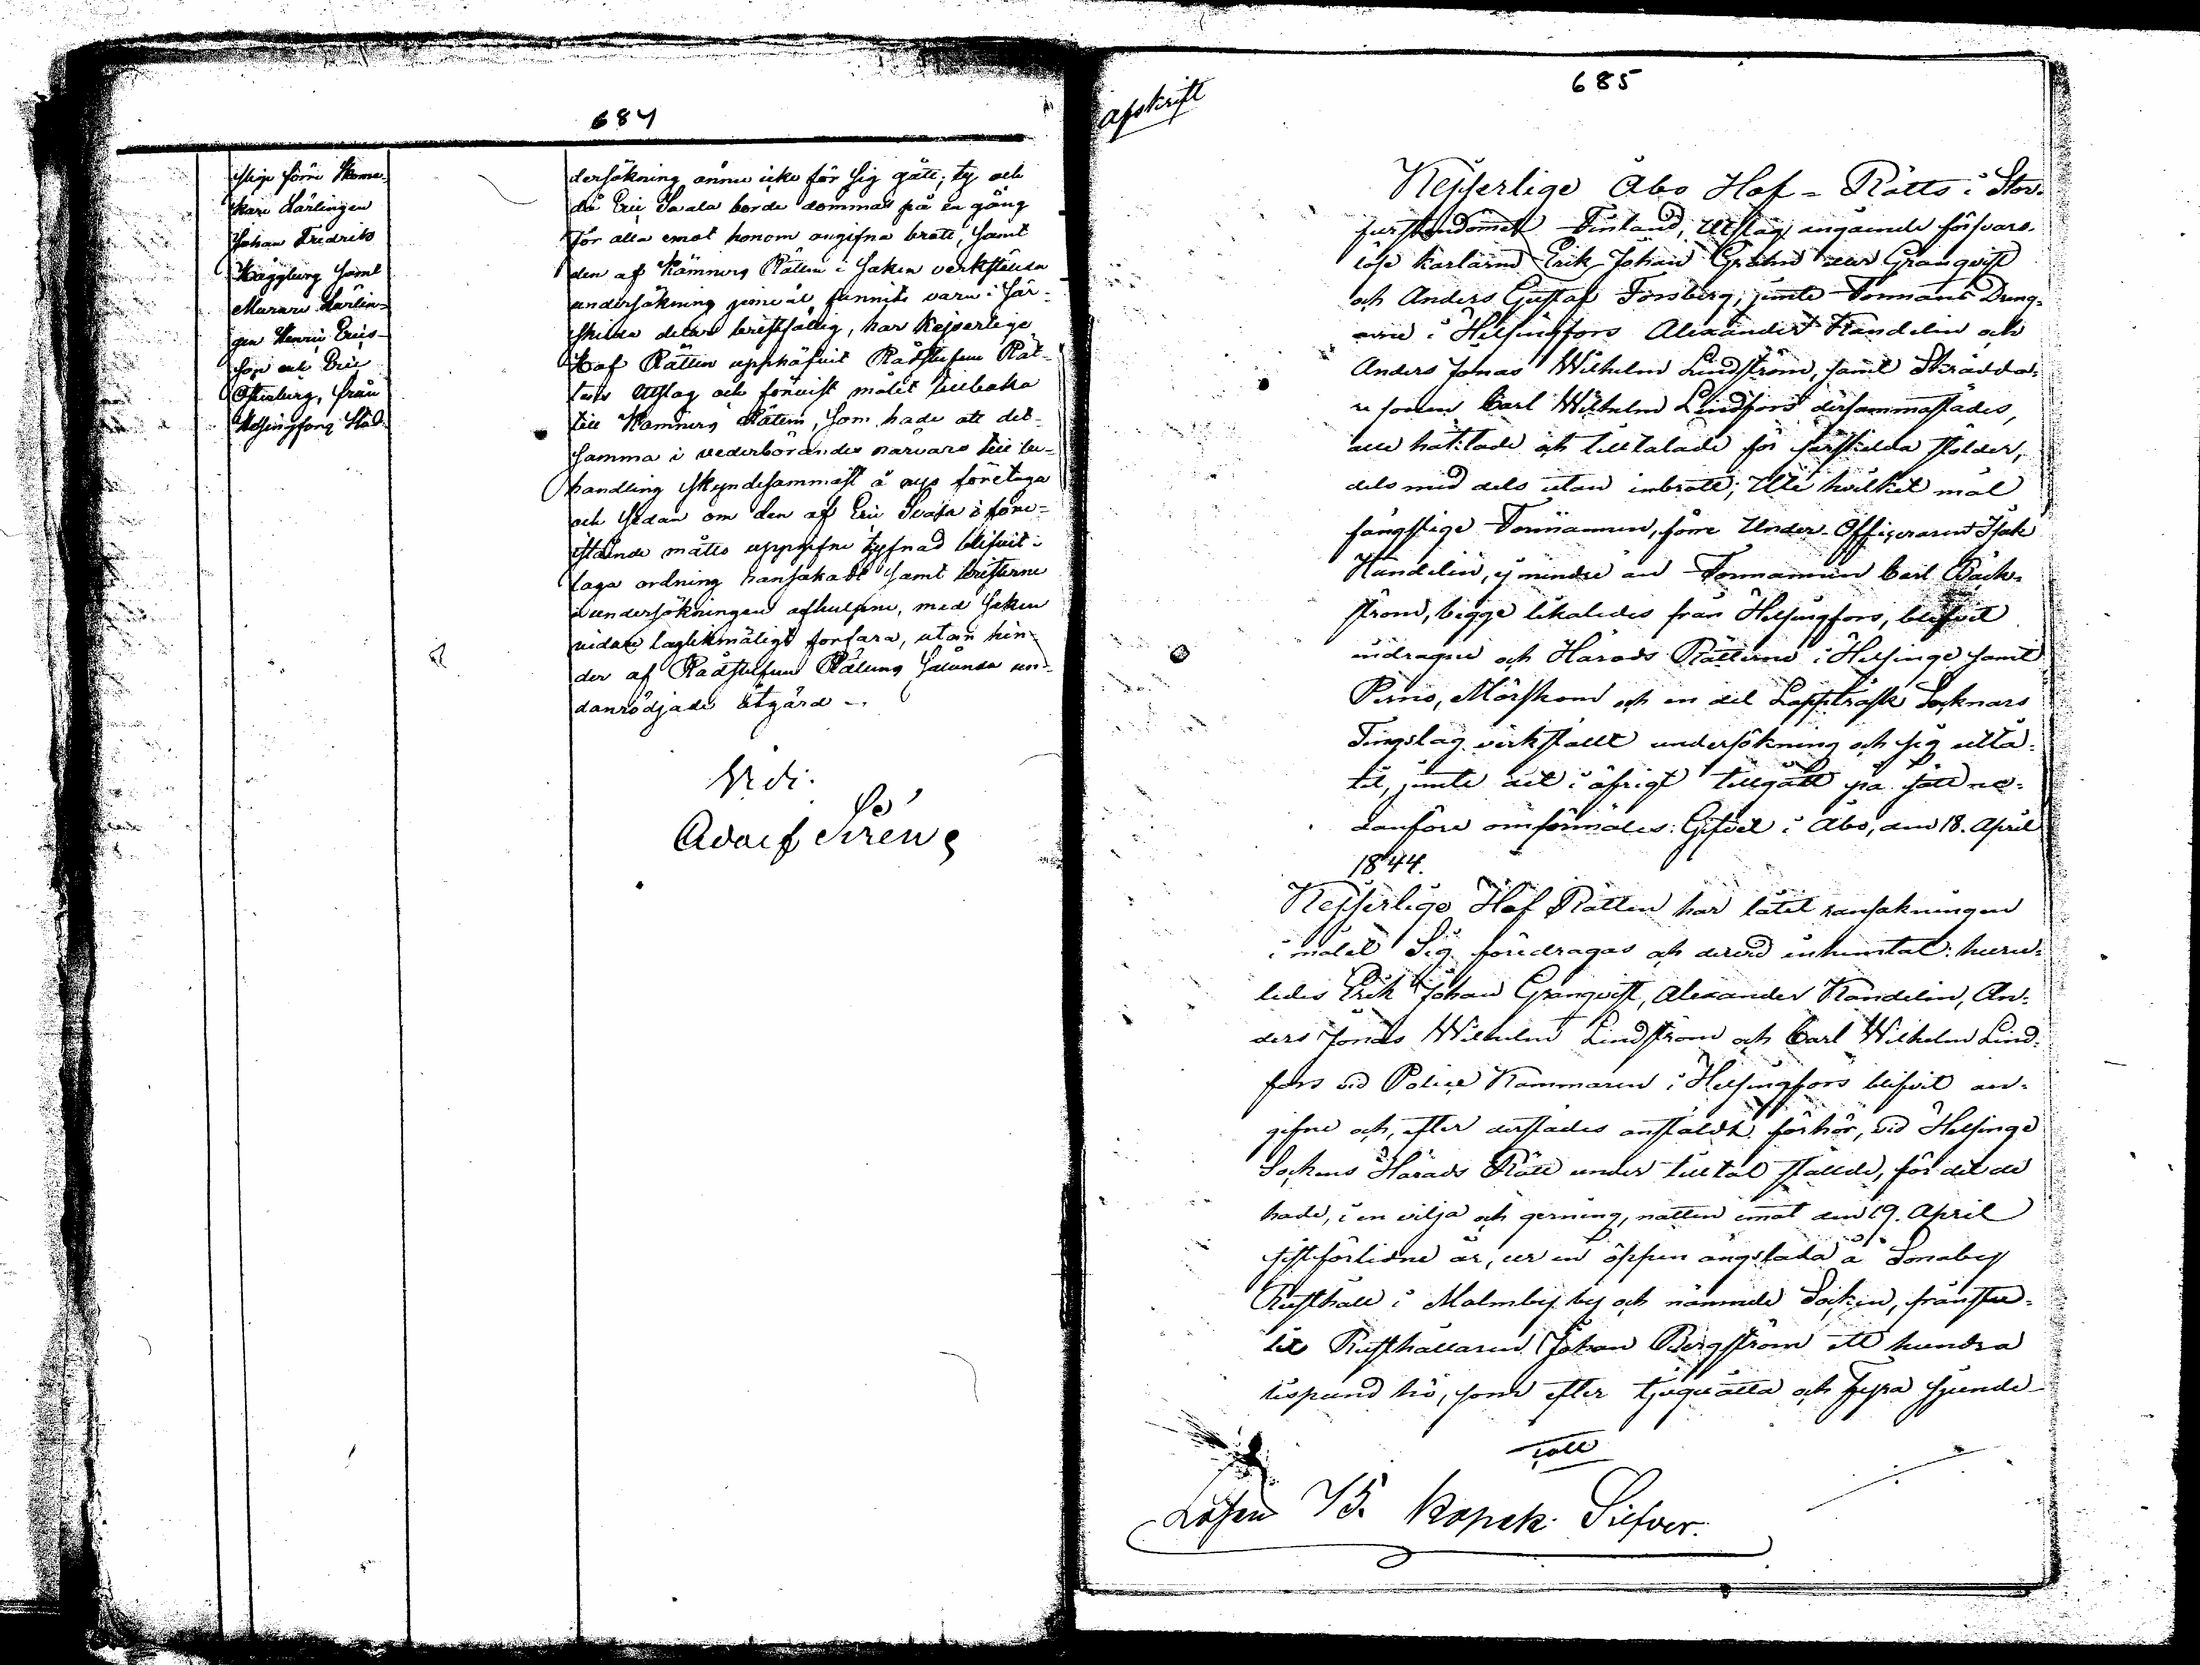 684
ſtige förre Skoma-
kare Lärlingen
Johan Fredrik
Häggberg ſamt
Murare Lärlin-
gen Henric Erics-
ſon och Eric
Öſterberg, från
Helſingfors Stad.
derſökning ännu icke för ſig gått; ty och
då Eric Svala borde dömmas på en gång
för alla emot honom angifna brott, ſamt
den af Kämners Rätten i ſaken verkſtälda
underſökning jemväl funnits vara i ſär-
ſkilda delar briſtfällig, har Kejſerlige
Hof Rätten upphäfvit Rådſtufvu Rät-
tens Utſlag och förviſt målet tillbaka
till Kämners Rätten, ſom hade att det-
ſamma i vederbörandes närvaro till be-
handling ſkyndeſammaſt å nyo företaga
och ſedan om den af Eric Svala i före-
ſtående måtto uppgifne tjufnad blifvit i
laga ordning ranſakadt ſamt briſterne
i underſökningen afhulpne, med ſaken
vidare laglikmätigt förfara, utan hin-
der af Rådſtufvu Rättens ſålunda un-
danrödjade åtgärd.
Vidi:
Adolf Sirén
Afskrift
685
Kejſerlige Åbo Hof-Rätts i Stor-
furſtendömet Finland, Utſlag angående förſvars-
löſe karlarne Erik Johan Grahn eller Granqviſt
och Anders Guſtaf Forsberg, jemte Formans Dräng-
arne i Helſingfors Alexander Kandelin och
Anders Jonas Wilhelm Lindſtröm, ſamt Skrädda-
re ſonen Carl Wilhelm Lindfors derſammaſtädes,
alle häktade och tilltalade för ſärſkilda ſtölder,
dels med dels utan inbrott; Uti hvilket mål
fängſlige Formannen, förre Under-Officeraren Iſak
Handelin, ej mindre än Formannen Carl Bäck-
ſtröm, begge likaledes från Helſingfors, blifvit
indragne och Härads Rätterne i Helſinge ſamt
Perno, Mörſkom och en del Lappträſk Socknars
Tingslag verkſtällt underſökning och ſig utlå-
tit, jemte det i öfrigt tillgått på ſätt ne-
danföre omförmäles: Gifvet i Åbo, den 18. April
1844.
Kejſerlige Hof Rätten har låtit ranſakningen
i målet Sig föredragas och deraf inhemtat: huru-
ledes Erik Johan Granqviſt, Alexander Kandelin, An-
ders Jonas Wilhelm Lindſtröm och Carl Wilhelm Lind-
fors vid Police Kammaren i Helſingfors blifvit an-
gifne och, efter derſtädes anſtäldt förhör, vid Helſinge
Sockens Härads Rätt under tilltal ſtällde, för det de
hade, i en vilja och gerning, natten emot den 19. April
ſiſtförlidne år, ur en öppen ängslada å Sonaby
Ruſthåll i Malmby by och nämnde Socken, frånſtu-
lit Ruſthållaren Johan Bergſtröm ett hundra
lispund hö, ſom efter tjuguåtta och Fyra ſjunde-
tall
Löſen 75. kopek Silfver.